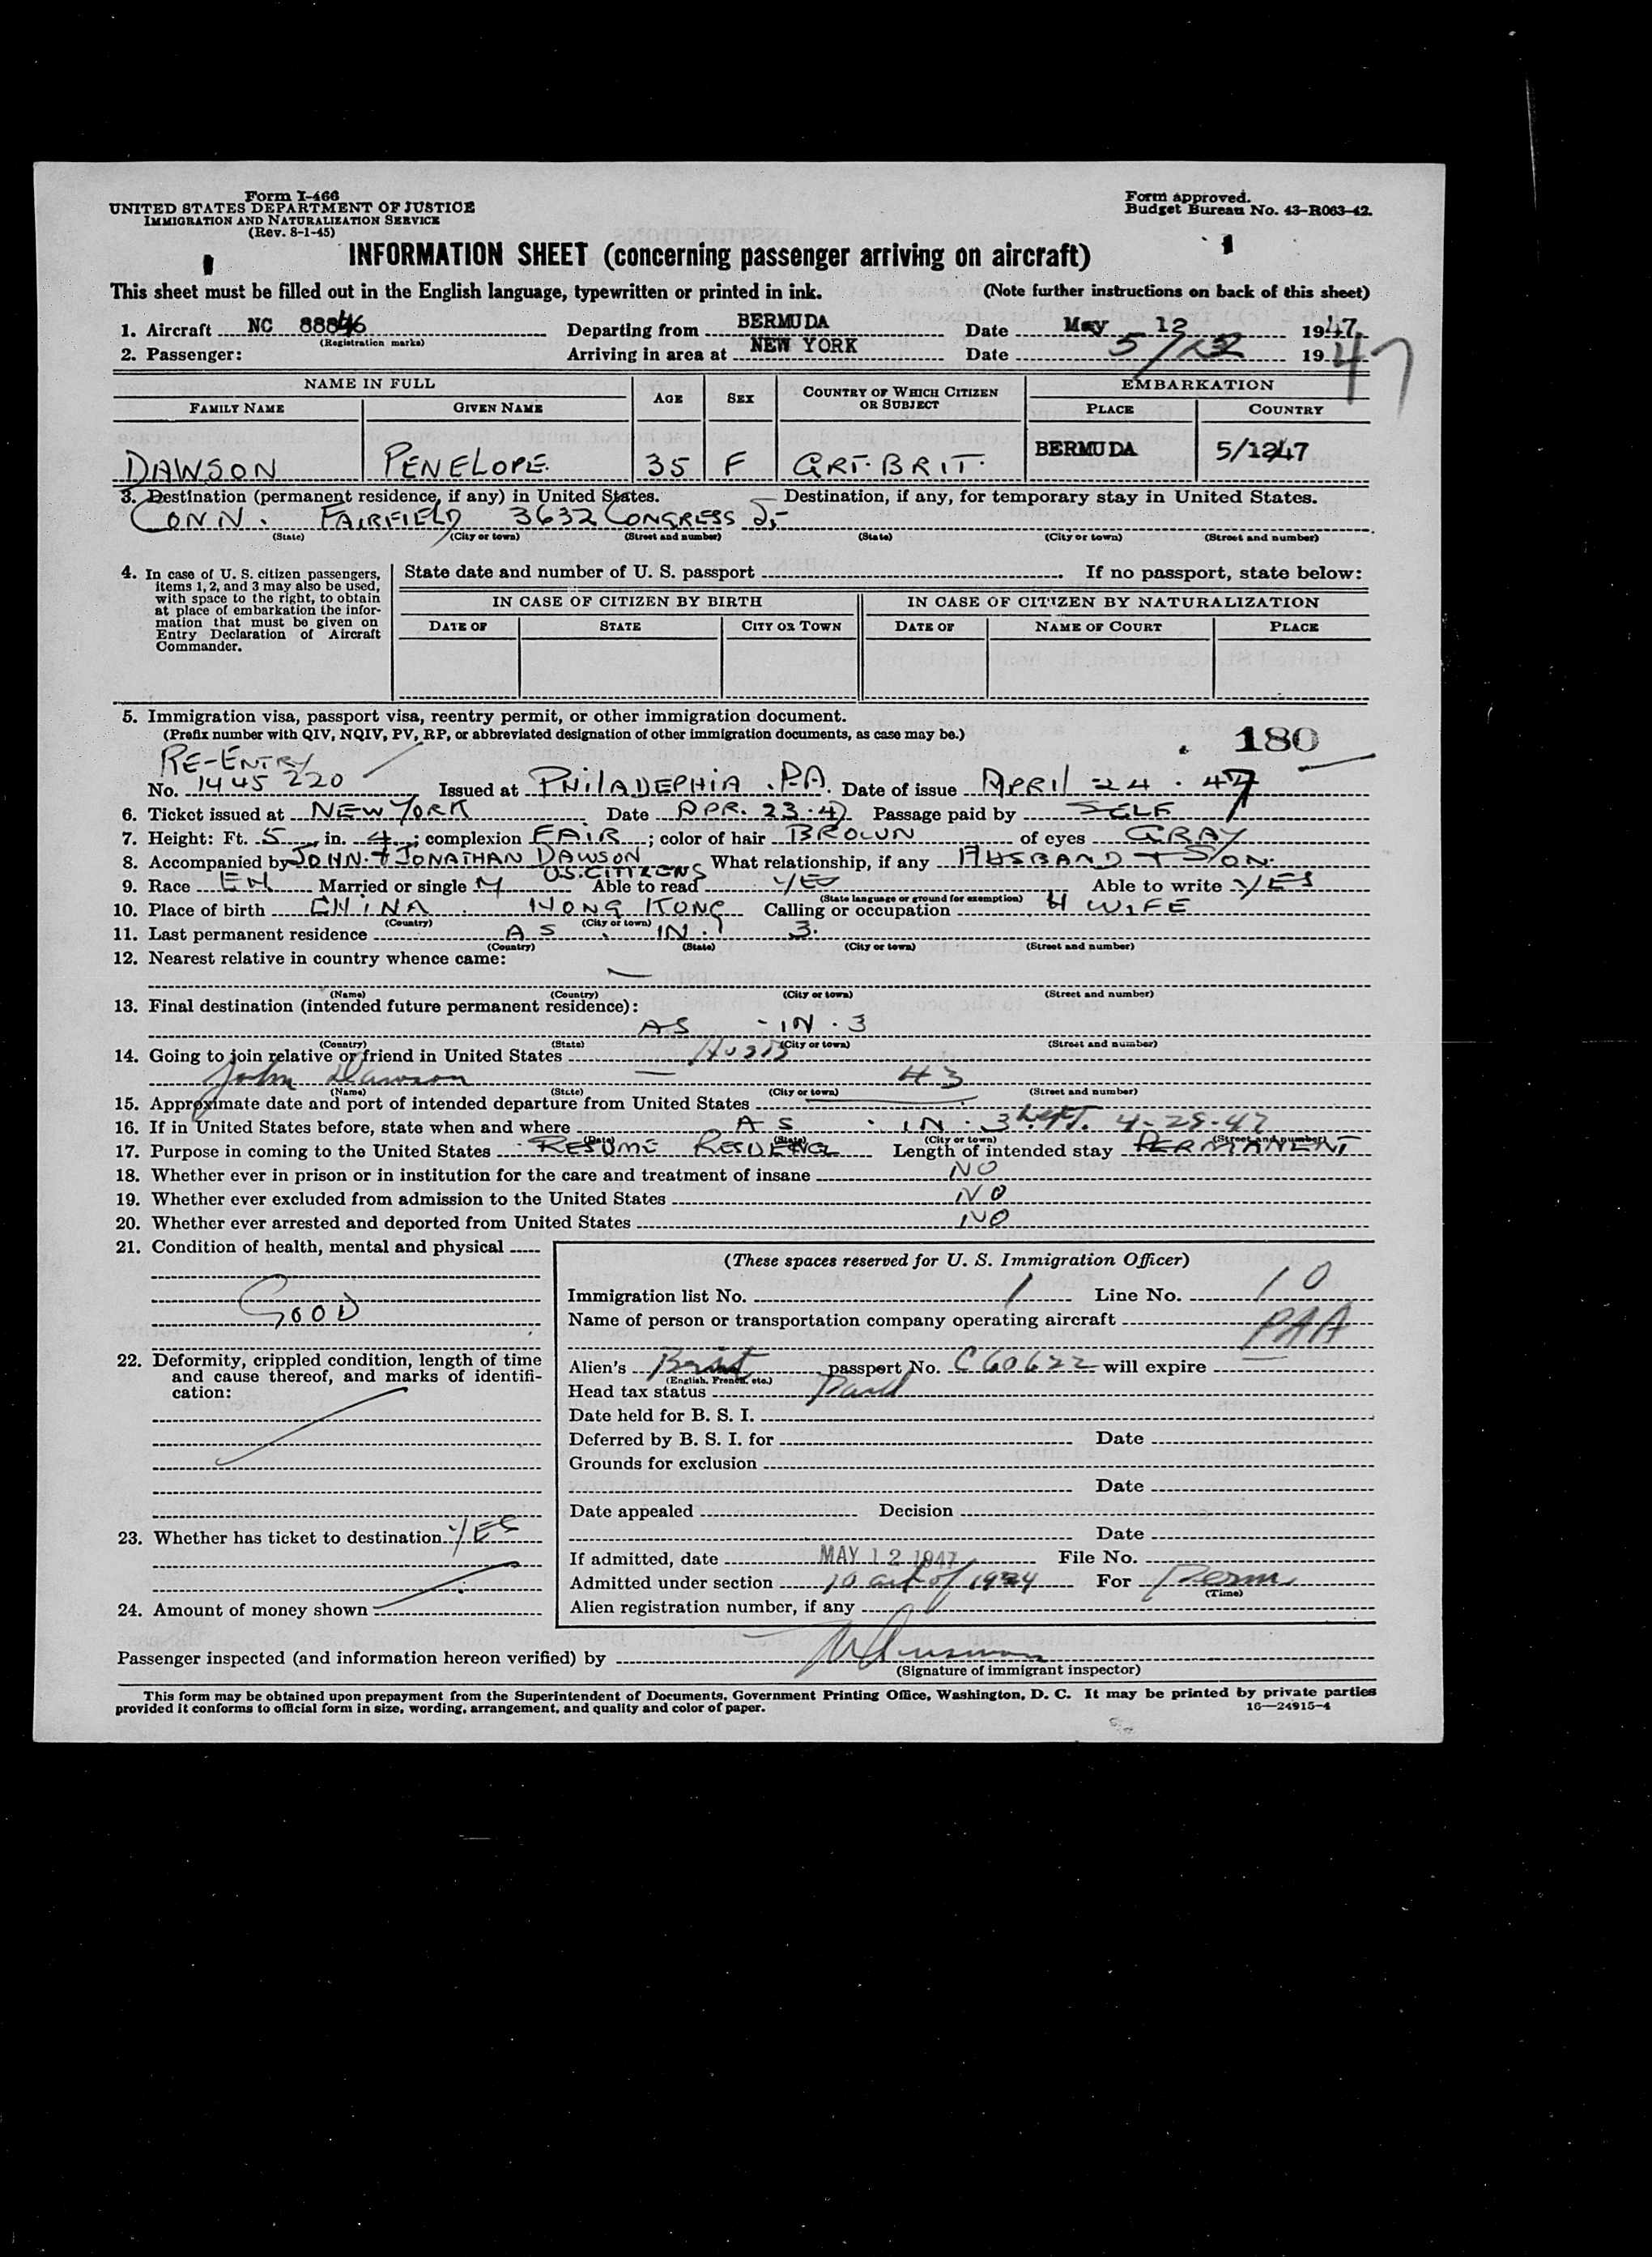 Form I-466
UNITED STATES DEPARTMENT OF JUSTICE
IMMIGRATION AND NATURALIZATION SERVICE
(Rev. 8-1-45)
Form approved.
Budget Bureau No. 43-R063-42.
INFORMATION SHEET (concerning passenger arriving on aircraft)
This sheet must be filled out in the English language, typewritten or printed in ink. (Note further instructions on back of this sheet)
1. Aircraft NC 88846 Departing from BERMUDA Date May 12 1947
(Registration marks)
2. Passenger: Arriving in area at NEW YORK Date 5/12 1947
NAME IN FULL AGE SEX COUNTRY OF WHICH CITIZEN OR SUBJECT EMBARKATION
FAMILY NAME GIVEN NAME PLACE COUNTRY
DAWSON PENELOPE 35 F GRT. BRIT. BERMUDA 5/12/47
3. Destination (permanent residence, if any) in United States. Destination, if any, for temporary stay in United States.
CONN. FAIRFIELD 3632 CONGRESS St
(State) (City or town) (Street and number) (State) (City or town) (Street and number)
4. In case of U. S. citizen passengers, items 1, 2, and 3 may also be used, with space to the right, to obtain at place of embarkation the information that must be given on Entry Declaration of Aircraft Commander.
State date and number of U. S. passport If no passport, state below:
IN CASE OF CITIZEN BY BIRTH IN CASE OF CITIZEN BY NATURALIZATION
DATE OF STATE CITY OR TOWN DATE OF NAME OF COURT PLACE
5. Immigration visa, passport visa, reentry permit, or other immigration document.
(Prefix number with QIV, NQIV, PV, RP, or abbreviated designation of other immigration documents, as case may be.)
180
RE-ENTRY
No. 1445220 Issued at PHILADEPHIA. PA. Date of issue APRIL 24. 47
6. Ticket issued at NEW YORK Date APR. 23.47 Passage paid by SELF
7. Height: Ft. 5, in. 4; complexion FAIR; color of hair BROWN of eyes GRAY
8. Accompanied by JOHN. + JONATHAN DAWSON What relationship, if any HUSBAND + SON.
U.S. CITIZENS
9. Race EN Married or single M Able to read YES Able to write YES
(State language or ground for exemption)
10. Place of birth CHINA. HONG KONG Calling or occupation H WIFE
(Country) (City or town)
11. Last permanent residence AS IN 3.
(Country) (State) (City or town) (Street and number)
12. Nearest relative in country whence came:
(Name) (Country) (City or town) (Street and number)
13. Final destination (intended future permanent residence):
AS - IN. 3
(Country) (State) (City or town) (Street and number)
14. Going to join relative or friend in United States Husb
John Dawson #3
(Name) (State) (City or town) (Street and number)
15. Approximate date and port of intended departure from United States
16. If in United States before, state when and where AS. IN. 3 Left. 4-25-47
(Date) (State) (City or town) (Street and number)
17. Purpose in coming to the United States RESUME RESIDENCE Length of intended stay PERMANENT
18. Whether ever in prison or in institution for the care and treatment of insane NO
19. Whether ever excluded from admission to the United States NO
20. Whether ever arrested and deported from United States NO
21. Condition of health, mental and physical
GOOD
22. Deformity, crippled condition, length of time and cause thereof, and marks of identification:
23. Whether has ticket to destination. YES
24. Amount of money shown
(These spaces reserved for U. S. Immigration Officer)
Immigration list No. 1 Line No. 10
Name of person or transportation company operating aircraft PAA
Alien's Brit passport No. C60622 will expire
(English, French, etc.)
Head tax status Paid
Date held for B. S. I.
Deferred by B. S. I. for Date
Grounds for exclusion
Date
Date appealed Decision
Date
If admitted, date MAY 12 1947 File No.
Admitted under section 10 act of 1924 For Perm
(Time)
Alien registration number, if any
Passenger inspected (and information hereon verified) by
(Signature of immigrant inspector)
This form may be obtained upon prepayment from the Superintendent of Documents, Government Printing Office, Washington, D. C. It may be printed by private parties
provided it conforms to official form in size, wording, arrangement, and quality and color of paper. 16—24915-4